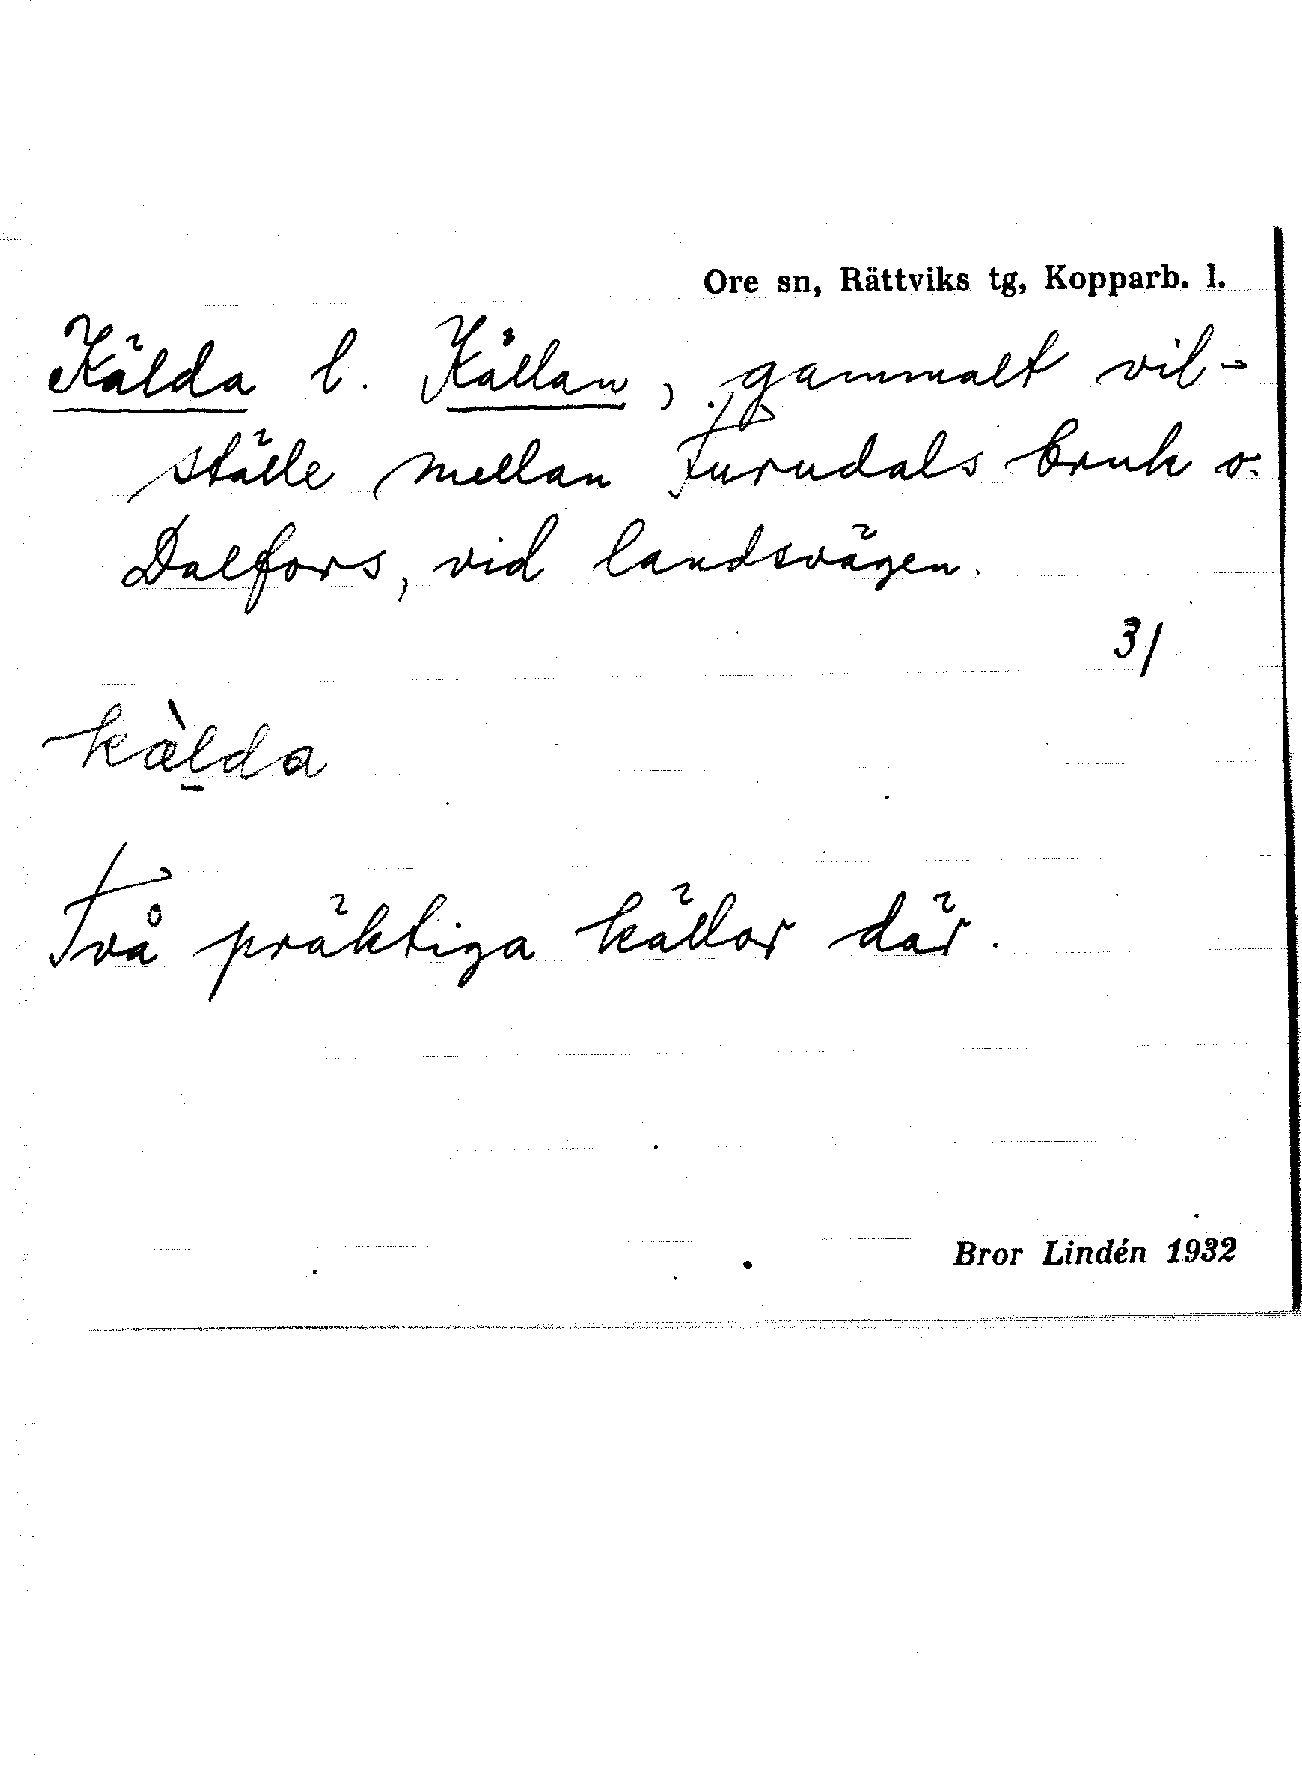 Ore sn, Rättviks tg, Kopparb. l.
Kälda l. Källan, gammalt vil-
ställe mellan Furudals bruk o.
Dalfors, vid landsvägen.
3/
kæ̀l̠da
Två präktiga källor där.
Bror Lindén 1932